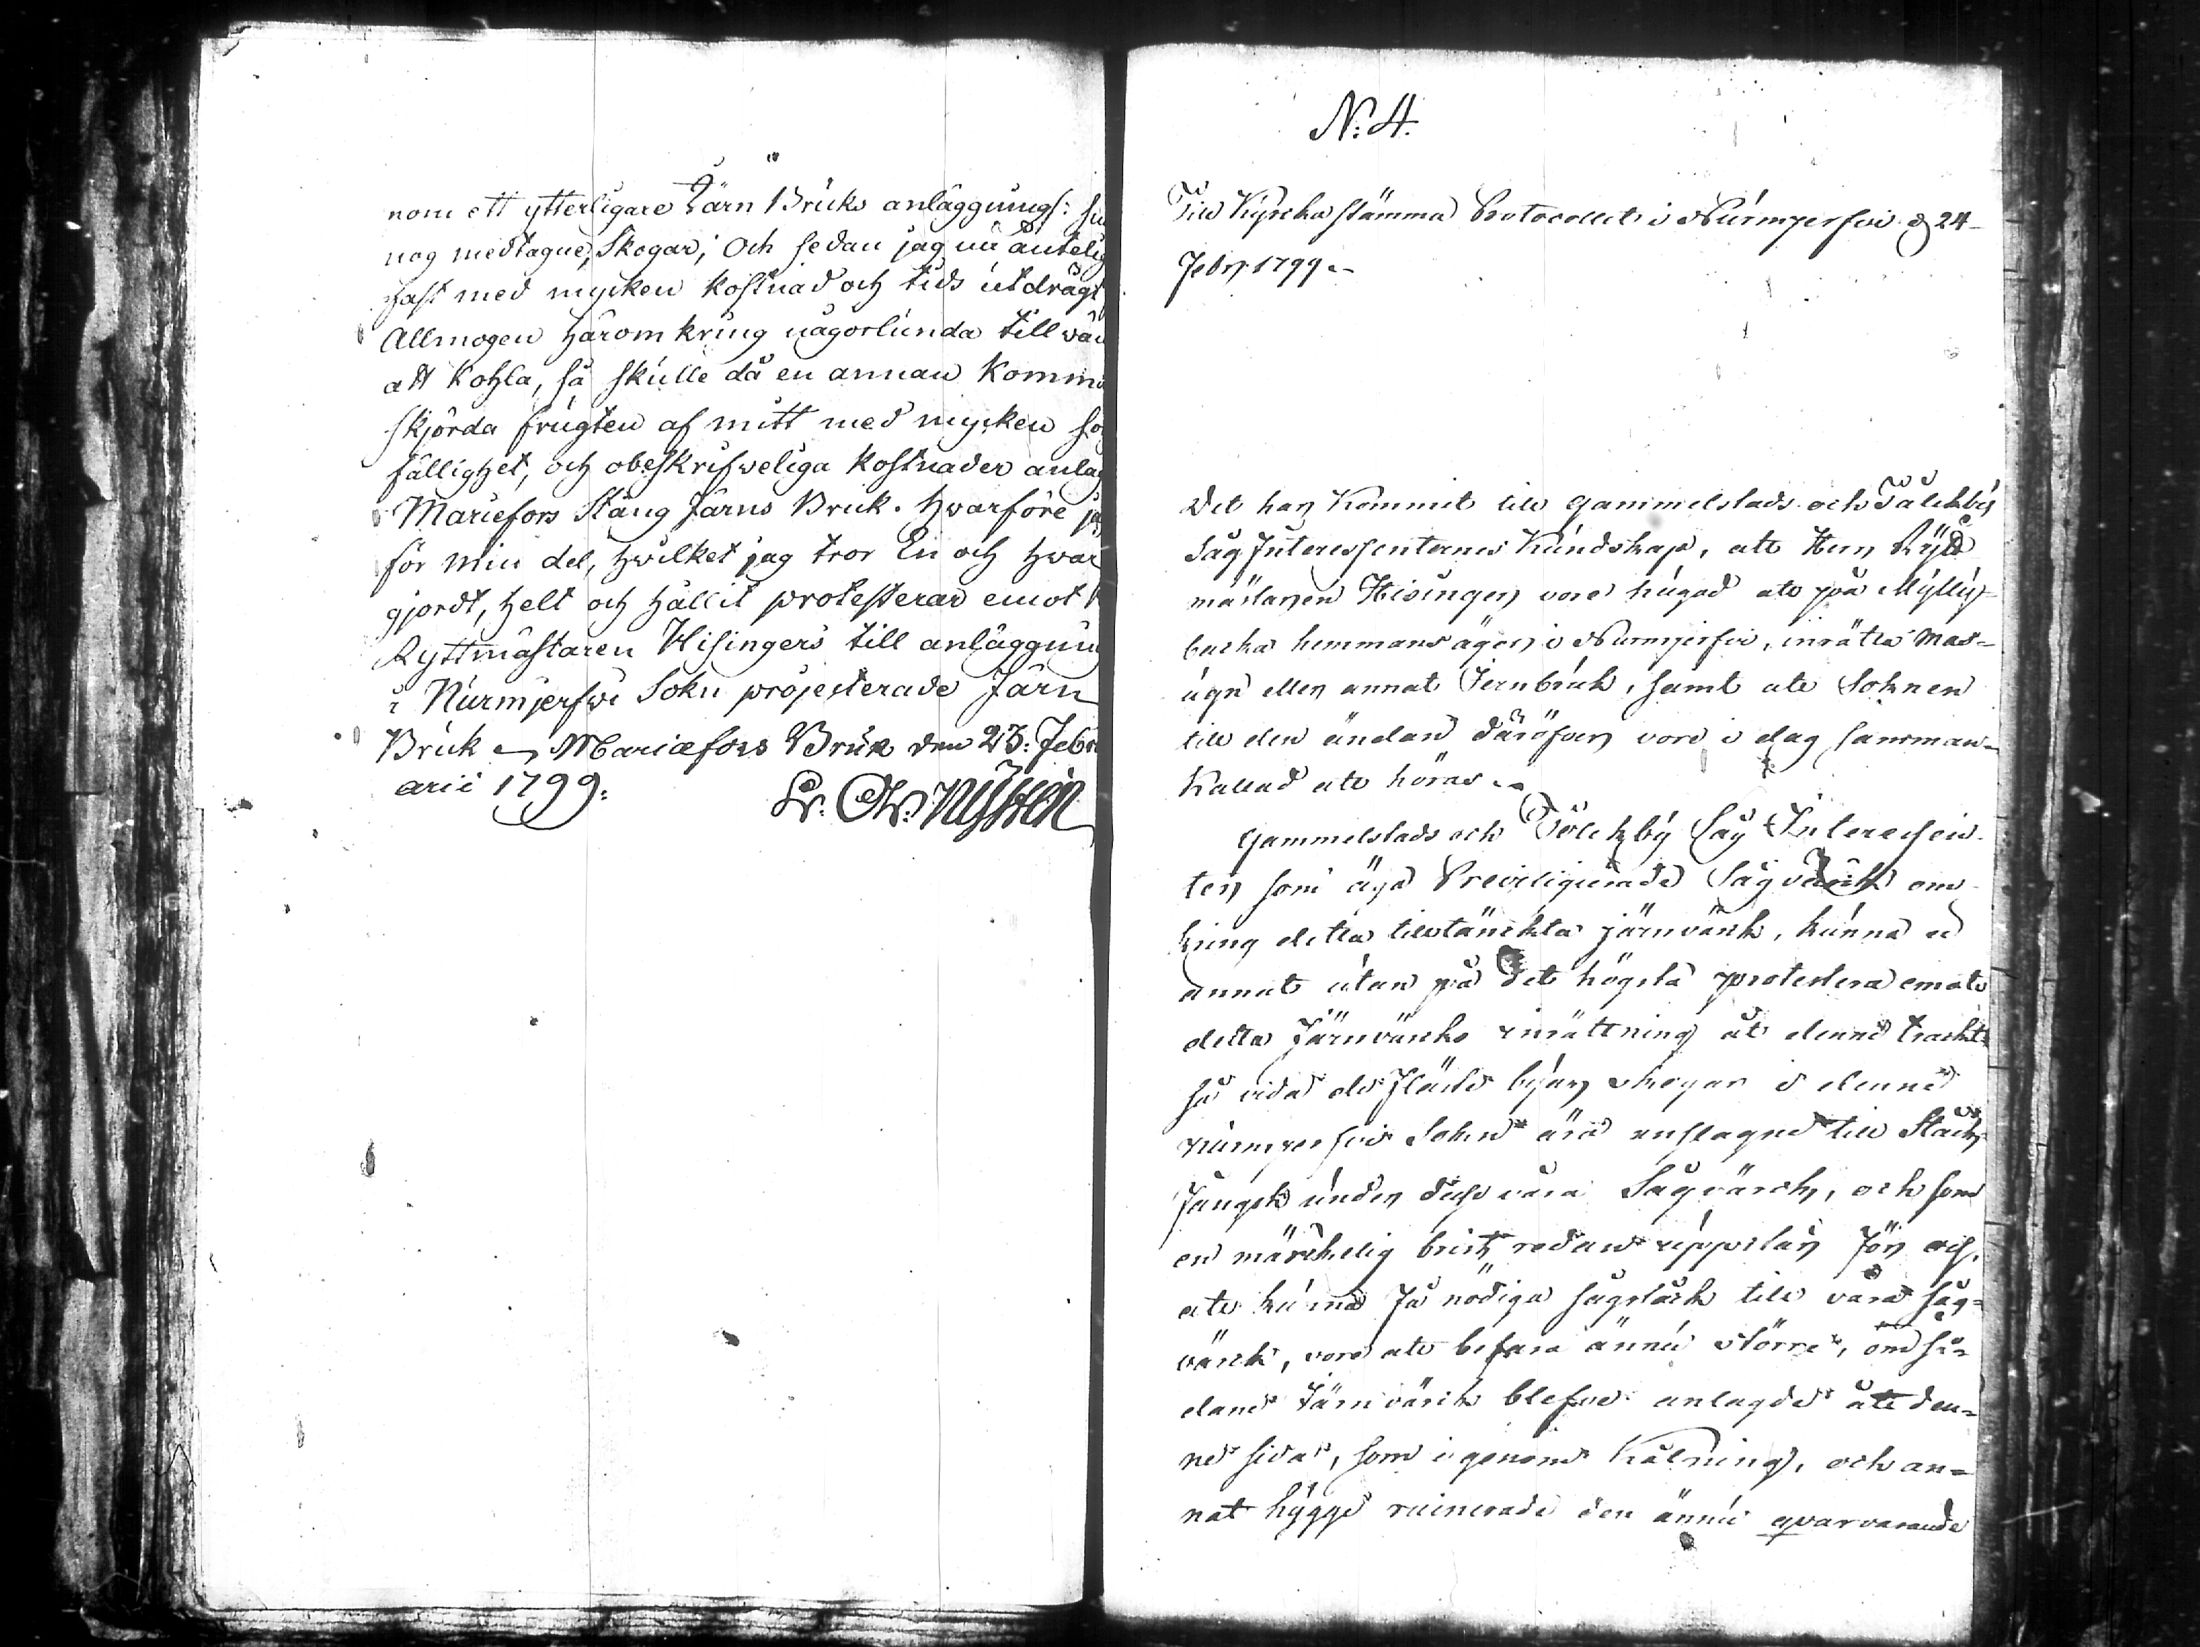 nom ett ytterligare Järn Bruks anläggning:
nog medtagne, Skogar; Och sedan jag nu äntelig
fast med mycken kostnad och tids utdrägt
Allmogen häromkring någorlunda till wan
att Kohla, så skulle då en annan Komm
skjörda frugten af mitt med mycken sor
fällighet, och obeskrifweliga kostnader anlag
Mariefors Stång Järns Bruk. Hwarföre ja
för min del, hwilket jag tror En och hwar
gjordt, helt och hållit protesterar emot
Ryttmästaren Hisingers till anläggning
i Nurmjerfwi Sokn projecterade Järn
Bruk Mariæfors Bruk den 23: Febru
arii 1799:
N:4.
Till Kyrcko stämma Protocollet i Nurmjerfvi d 24
Febr 1799
Det har Kommit till Gammelstads och Tålckby
Såg Interessenternes Kundskap, att Herr Rytt
mästaren Hisinger vore hugad att på Mylly=
backa hemmans ägor i Nurmjerfvi, inrätta Mas=
ugn eller annat Jernbruk, samt att Soknen
till den ändan däröfver vore i dag samman
Kallad att höras
Gammelstads och Tölckby Såg Interessen
ter som äga Previligierade Sågvärck om
kring detta tilltänckta järnvärk, kunna ej
annat utan på det högsta protestera emot
detta Järnvärcks inrättning åt denne trackt
så vida de fläste byars skogar i denne
Nurmjerfvi Sokn äro anslagne till Stock
fångst under dessa våra Sågvärck, och som
en märckelig brist redan uppstår för oss,
att kunna få nödiga sågstock till våra såg=
värck, vore att befara ännu större, om så=
dane Järnvärck blefve anlagde åt den=
ne sida, som igenom Kålning, och an=
nat hygge ruinerade den ännu qvarvarande